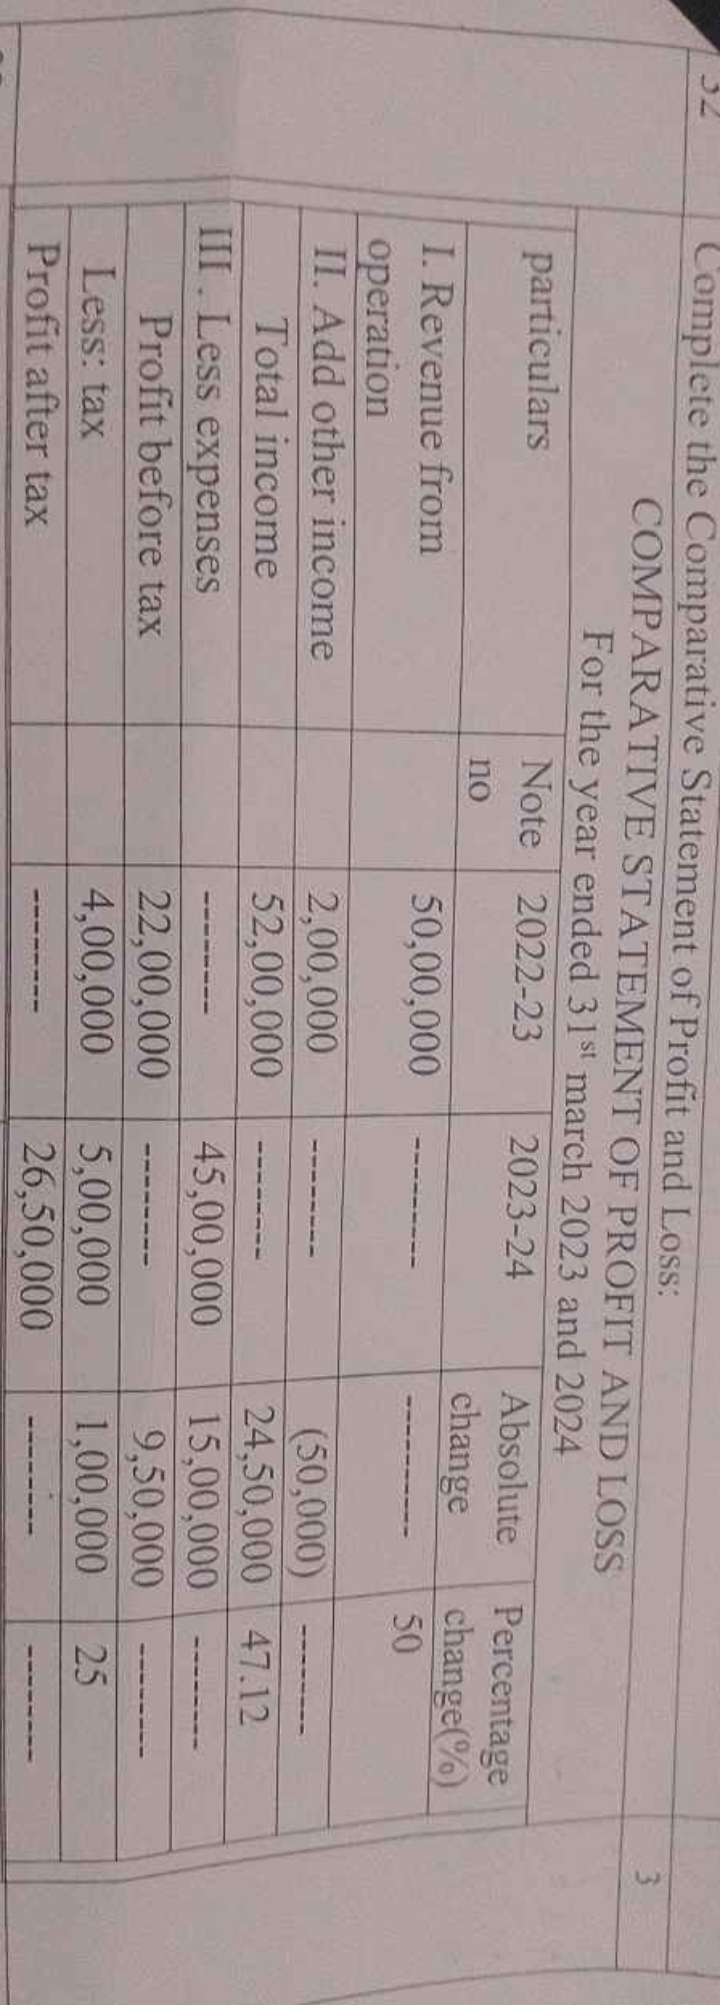 32 Complete the Comparative Statement of Profit and Loss:
COMPARATIVE STATEMENT OF PROFIT AND LOSS 3
For the year ended 31st march 2023 and 2024
particulars Note no 2022-23 2023-24 Absolute change Percentage change(%)
I. Revenue from operation 50,00,000 ---------- ---------- 50
II. Add other income 2,00,000 --------- (50,000) --------
Total income 52,00,000 --------- 24,50,000 47.12
III . Less expenses --------- 45,00,000 15,00,000 --------
Profit before tax 22,00,000 --------- 9,50,000 --------
Less: tax 4,00,000 5,00,000 1,00,000 25
Profit after tax --------- 26,50,000 --------- --------